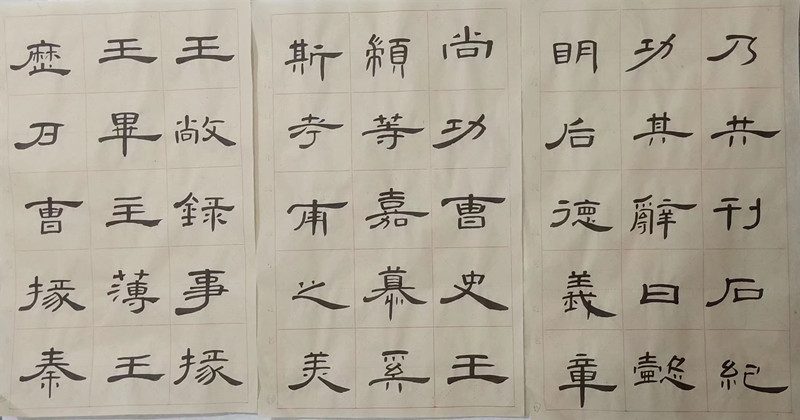 王敞録事掾
王畢主薄王
歷户曹掾秦
尚功曹史王
顓等嘉慕奚
斯考甫之美
乃共刊石紀
功其辭曰懿
明后德義章